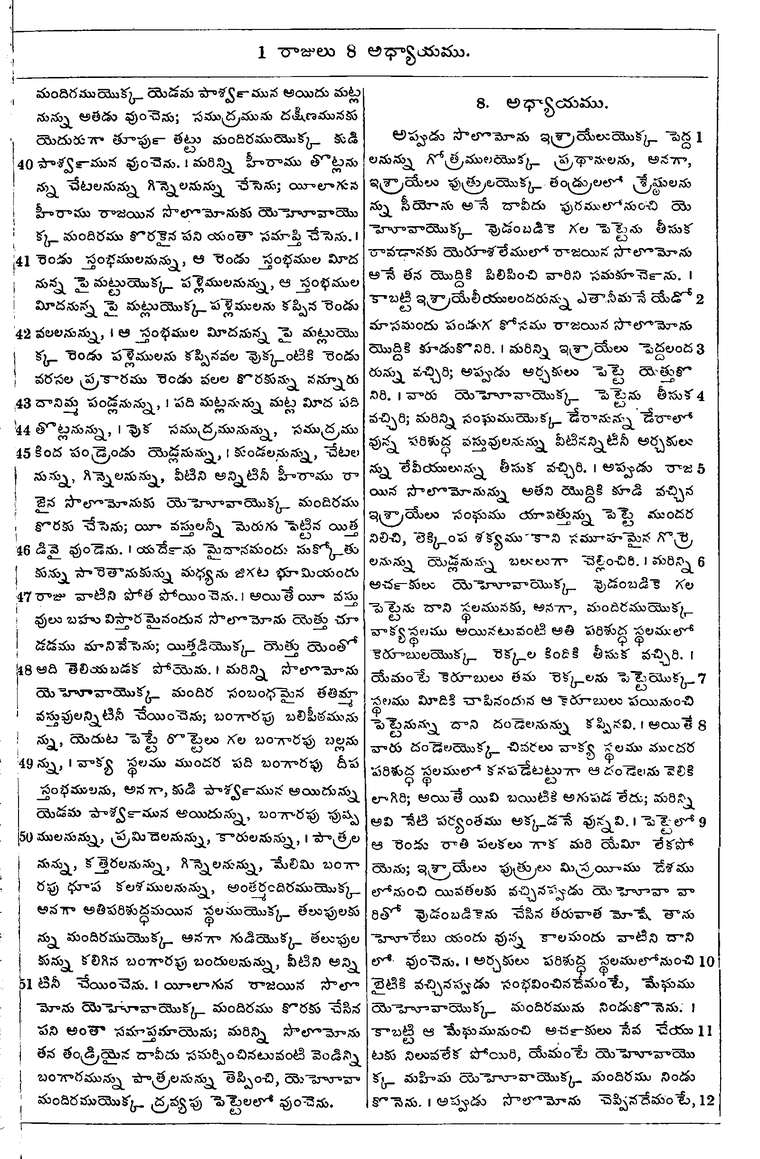 1 రాజులు 8 అధ్యాయము.
మందిరముయొక్క యెడమ పార్శ్వమున అయిదు మట్ల
నున్ను అతడు వుంచెను; సముద్రమును దక్షిణమునకు
యెదురుగా తూర్పు తట్టు మందిరముయొక్క కుడి
40 పార్శ్వమున వుంచెను. । మరిన్ని హీరాము తొట్లను
న్ను చేటలనున్ను గిన్నెలనున్ను చేసెను; యీలాగున
హీరాము రాజయిన సొలొమోనుకు యెహోవాయొ
క్క మందిరము కొరకైన పని యంతా సమాప్తి చేసెను. ।
41 రెండు స్తంభములనున్ను, ఆ రెండు స్తంభముల మీద
నున్న పై మట్టుయొక్క పళ్లెములనున్ను, ఆ స్తంభముల
మీదనున్న పై మట్లుయొక్క పళ్లెములను కప్పిన రెండు
42 వలలనున్ను, । ఆ స్తంభముల మీదనున్న పై మట్లుయొ
క్క రెండు పళ్లెములను కప్పినవల వొక్కంటికి రెండు
వరసల ప్రకారము రెండు వలల కొరకున్ను నన్నూరు
43 దానిమ్మ పండ్లనున్ను, । పది మట్లనున్ను మట్ల మీద పది
44 తొట్లనున్ను, । వొక సముద్రమునున్ను, సముద్రము
45 కింద పండ్రెండు యెడ్లనున్ను, । కుండలనున్ను, చేటల
నున్ను, గిన్నెలనున్ను, వీటిని అన్నిటినీ హీరాము రా
జైన సొలొమోనుకు యెహోవాయొక్క మందిరము
కొరకు చేసెను; యీ వస్తులన్నీ మెరుగు పెట్టిన యిత్త
46 డివై వుండెను. । యర్దేను మైదానమందు సుక్కోతు
కున్ను సారెతానుకున్ను మధ్యను జిగట భూమియందు
47 రాజు వాటిని పోత పోయించెను. । అయితే యీ వస్తు
వులు బహు విస్తారమైనందున సొలొమోను యెత్తు చూ
డడము మానివేసెను; యిత్తడియొక్క యెత్తు యెంతో
48 అది తెలియబడక పోయెను. । మరిన్ని సొలొమోను
యెహోవాయొక్క మందిర సంబంధమైన తతిమ్మా
వస్తువులన్నిటినీ చేయించెను; బంగారపు బలిపీఠమును
న్ను, యెదుట పెట్టే రొట్టెలు గల బంగారపు బల్లను
49 న్ను, । వాక్య స్థలము ముందర పది బంగారపు దీప
స్తంభములను, అనగా, కుడి పార్శ్వమున అయిదున్ను
యెడమ పార్శ్వమున అయిదున్ను, బంగారపు పుష్ప
50 ములనున్ను, ప్రమిదెలనున్ను, కారులనున్ను, । పాత్రల
నున్ను, కత్తెరలనున్ను, గిన్నెలనున్ను, మేలిమి బంగా
రపు ధూప కలశములనున్ను, అంతర్మందిరముయొక్క
అనగా అతిపరిశుద్ధమయిన స్థలముయొక్క తలుపులకు
న్ను మందిరముయొక్క అనగా గుడియొక్క తలుపుల
కున్ను కలిగిన బంగారపు బందులనున్ను, వీటిని అన్ని
51 టినీ చేయించెను. । యీలాగున రాజయిన సొలొ
మోను యెహోవాయొక్క మందిరము కొరకు చేసిన
పని అంతా సమాప్తమాయెను; మరిన్ని సొలొమోను
తన తండ్రియైన దావీదు సమర్పించినటువంటి వెండిన్ని
బంగారమున్ను పాత్రలనున్ను తెప్పించి, యెహోవా
మందిరముయొక్క ద్రవ్యపు పెట్టెలలో వుంచెను.
8. అధ్యాయము.
అప్పుడు సొలొమోను ఇశ్రాయేలుయొక్క పెద్ద 1
లనున్ను గోత్రములయొక్క ప్రధానులను, అనగా,
ఇశ్రాయేలు పుత్రులయొక్క తండ్రులలో శ్రేష్ఠులను
న్ను సీయోను అనే దావీదు పురములోనుంచి యె
హోవాయొక్క వుడంబడికె గల పెట్టెను తీసుక
రావడానకు యెరూశలేములో రాజయిన సొలొమోను
అనే తన యొద్దికి పిలిపించి వారిని సమకూర్చెను. ।
కాబట్టి ఇశ్రాయేలీయులందరున్ను ఎతానీమనే యేడో 2
మాసమందు పండుగ కోసము రాజయిన సొలొమోను
యొద్దికి కూడుకొనిరి. । మరిన్ని ఇశ్రాయేలు పెద్దలంద 3
రున్ను వచ్చిరి; అప్పుడు అర్చకులు పెట్టె యెత్తుకొ
నిరి. । వారు యెహోవాయొక్క పెట్టెను తీసుక 4
వచ్చిరి; మరిన్ని సంఘముయొక్క డేరానున్ను డేరాలో
వున్న పరిశుద్ధ వస్తువులనున్ను వీటినన్నిటినీ అర్చకులు
న్ను లేవీయులున్ను తీసుక వచ్చిరి. । అప్పుడు రాజ 5
యిన సొలొమోనున్ను అతని యొద్దికి కూడి వచ్చిన
ఇశ్రాయేలు సంఘము యావత్తున్ను పెట్టె ముందర
నిలిచి, లెక్కింప శక్యము కాని సమూహమైన గొర్రె
లనున్ను యెడ్లనున్ను బలులుగా చెల్లించిరి. । మరిన్ని 6
అర్చకులు యెహోవాయొక్క వుడంబడికె గల
పెట్టెను దాని స్థలమునకు, అనగా, మందిరముయొక్క
వాక్యస్థలము అయినటువంటి అతి పరిశుద్ధ స్థలములో
కెరూబులయొక్క రెక్కల కిందికి తీసుక వచ్చిరి. ।
యేమంటే కెరూబులు తమ రెక్కలను పెట్టెయొక్క 7
స్థలము మీదికి చాపినందున ఆ కెరూబులు పయినుంచి
పెట్టెనున్ను దాని దండెలనున్ను కప్పినవి. । అయితే 8
వారు దండెలయొక్క చివరలు వాక్య స్థలము ముందర
పరిశుద్ధ స్థలములో కనపడేటట్టుగా ఆ దండెలను వెలికి
లాగిరి; అయితే యివి బయిటికి అగుపడ లేదు; మరిన్ని
అవి నేటి పర్యంతము అక్కడనే వున్నవి. । పెట్టెలో 9
ఆ రెండు రాతి పలకలు గాక మరి యేమీ లేకపో
యెను; ఇశ్రాయేలు పుత్రులు మిస్రయీము దేశము
లోనుంచి యివతలకు వచ్చినప్పుడు యెహోవా వా
రితో వుడంబడికెను చేసిన తరువాత మోషే తాను
హోరేబు యందు వున్న కాలమందు వాటిని దాని
లో వుంచెను. । అర్చకులు పరిశుద్ధ స్థలములోనుంచి 10
బైటికి వచ్చినప్పుడు సంభవించినదేమంటే, మేఘము
యెహోవాయొక్క మందిరమును నిండుకొనెను. ।
కాబట్టి ఆ మేఘమునుంచి అర్చకులు సేవ చేయు 11
టకు నిలువలేక పోయిరి, యేమంటే యెహోవాయొ
క్క మహిమ యెహోవాయొక్క మందిరము నిండు
కొనెను. । అప్పుడు సొలొమోను చెప్పినదేమంటే, 12